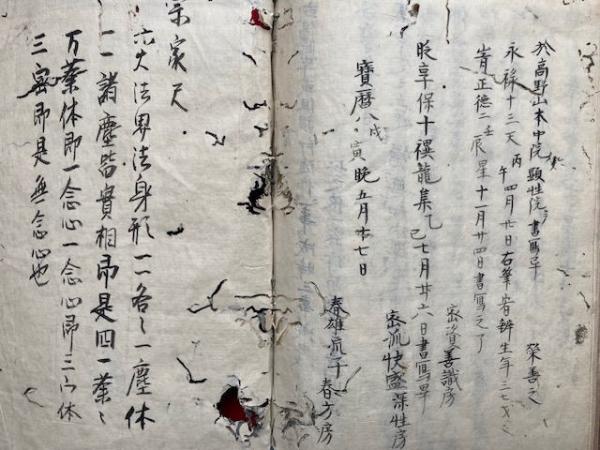 於高野山本中院顕性院書写畢 栄善之
永禄十三天丙午四月廿日右筆
岩正徳二壬辰星十一月廿四日書写之了
密資善識房
時享保十禩龍集乙巳七月廿六日書写畢
密流快盛深性房
寶暦八戊寅晩五月廿七日
春雄流子春方房
宗家尺
六大法界法身形一一各々一塵体
一一諸塵皆實相即是四一葉々
万葉体即一念心一念心即三六体
三密即是無念心也